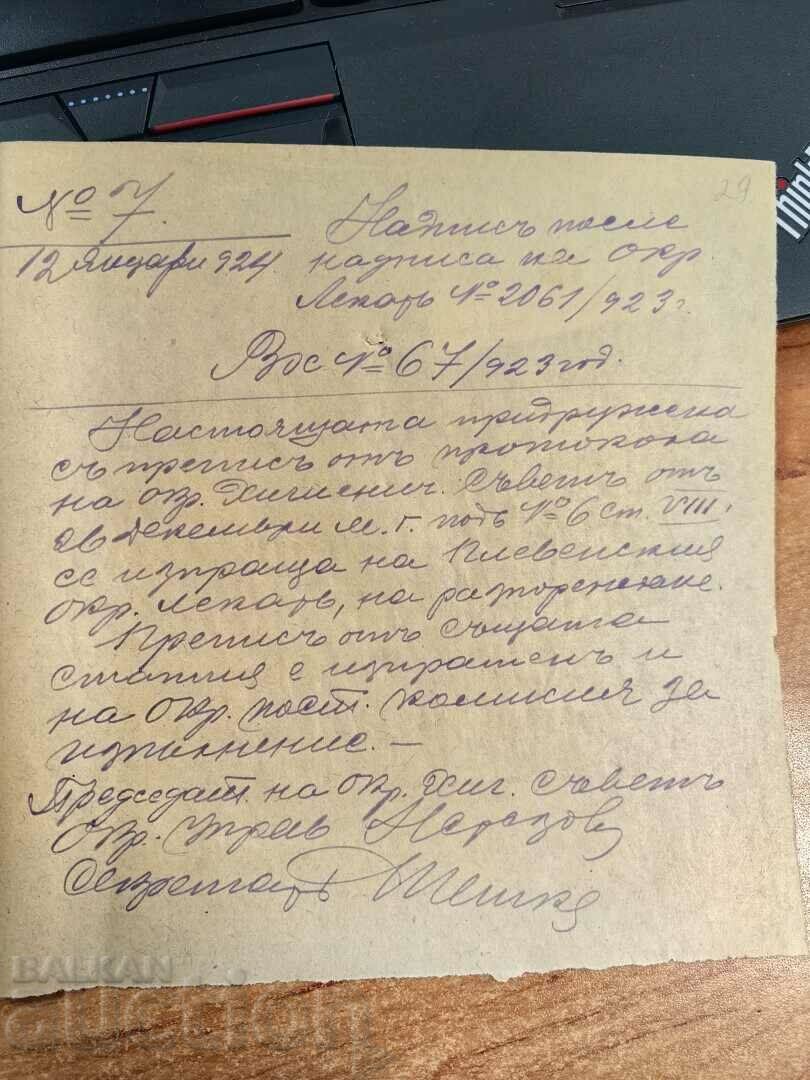 № 7.
29
12 Януари 924.
Надписъ после
надписа на Окр.
Лекарь № 2061/923 г.
Вх № 67/923 год.
Настоящата придружена
съ преписъ отъ протокола
на Окр. Хигиенич. Съветъ отъ
28 Декември м. г. подъ № 6 ст. VIII,
се изпраща на Плевенския
Окр. Лекарь, на разпореждане.
Преписъ отъ същата
статия е изпратенъ и
на Окр. пост. комисия за
изпълнение. —
Председат. на Окр. Хиг. Съветъ
Окр. Управ
Секретарь
BALKAN
auction
ThinkP